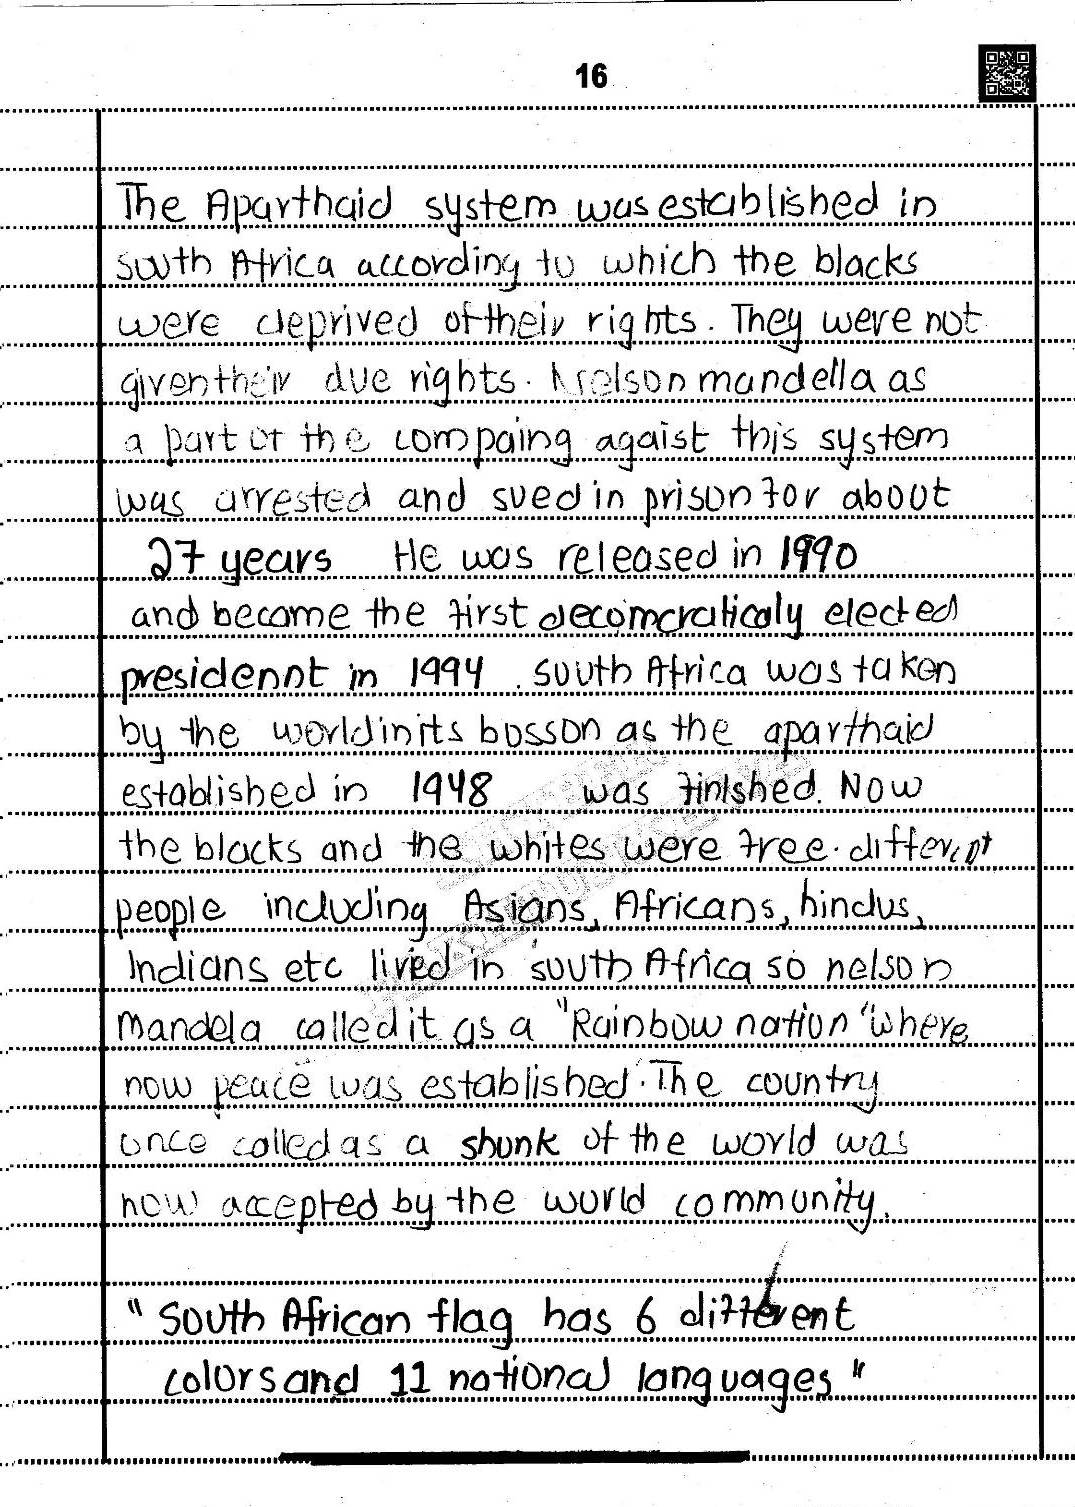 16
The Aparthaid system was established in
south Africa according to which the blacks
were deprived of their rights. They were not
given their due rights. Nelson mandella as
a part of the compaing agaist this system
was arrested and sued in prison for about
27 years He was released in 1990
and become the first decomcraticaly elected
presidennt in 1994 . South Africa was taken
by the world in its bosson as the aparthaid
established in 1948 was finished. Now
the blacks and the whites were free. different
people including Asians, Africans, hindus,
Indians etc lived in south Africa so nelson
Mandela called it as a "Rainbow nation" where
now peace was established. The country
once called as a shunk of the world was
now accepted by the world community.
"South African flag has 6 different
colors and 11 national languages"